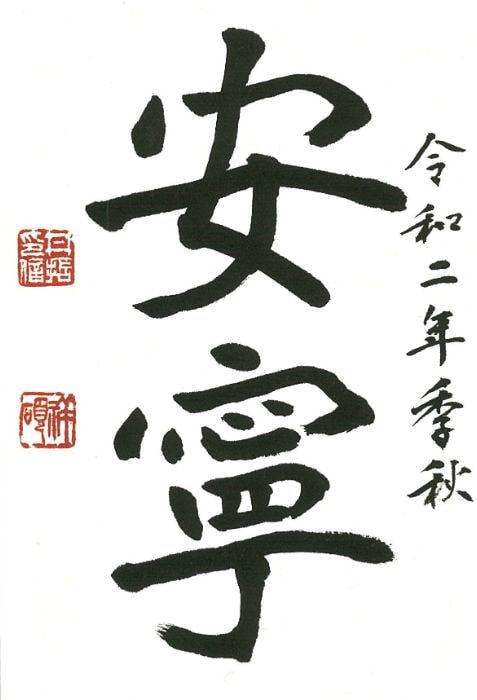 令和二年季秋
安寧